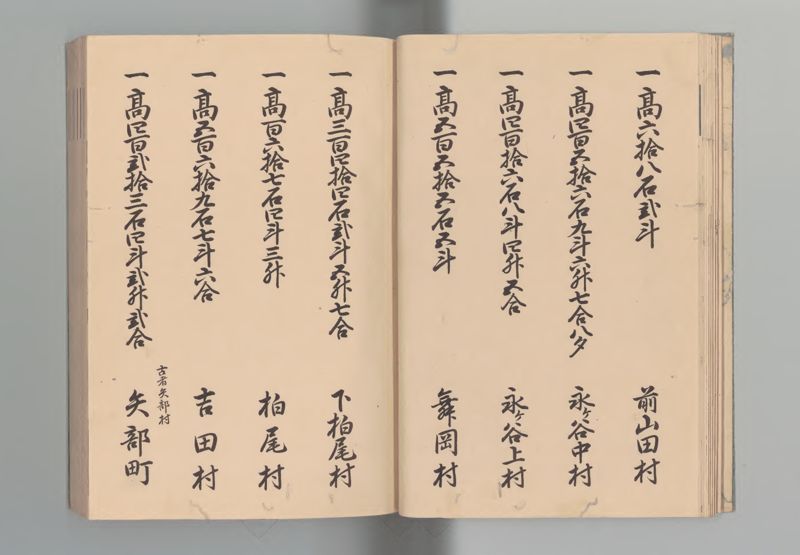 一高六拾八石弐斗　前山田村
一高四百五拾六石九斗六升七合八夕　永ヶ谷中村
一高四百拾六石八斗四升五合　永ヶ谷上村
一高五百五拾五石五斗　舞岡村
一高三百四拾四石弐斗五升七合　下柏尾村
一高百六拾七石四斗三升　柏尾村
一高五百六拾九石七斗六合　吉田村
古者矢部村
一高四百弐拾三石四斗弐升弐合　矢部町